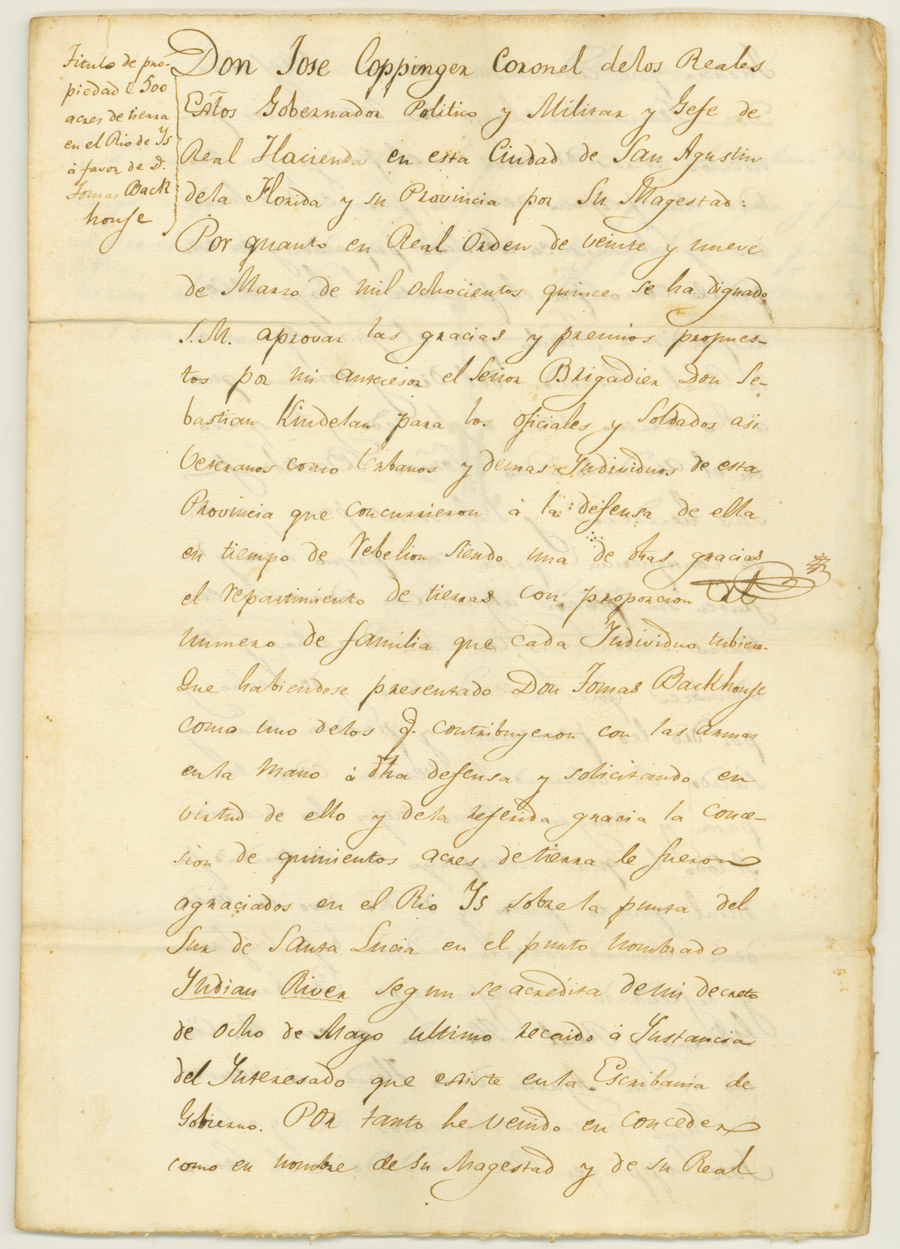 Titulo de pro-
piedad de 500
acres de tierra
en el Rio de Ys
á favor de D.
Tomas Back
house
Don Jose Coppinger Coronel delos Reales
Extos Gobernador Politico y Militar y Gefe de
Real Hacienda en esta Ciudad de San Agustin
dela Florida y su Provincia por Su Magestad:
Por quanto en Real Orden de veinte y nueve
de Marzo de mil ochocientos quince se ha dignado
S.M. aprovar las gracias y premios propues-
tos por mi antecesor el Señor Brigadier Don Se-
bastian Kindelan para los oficiales y Soldados asi
Veteranos como Urbanos y demas Individuos de esta
Provincia que concurrieron á la defensa de ella
en tiempo de Rebelion siendo una de dhas gracias
el repartimiento de tierras con proporcion al
numero de familia que cada Individuo tubiere.
Que habiendose presentado Don Tomas Backhouse
como uno delos q. contribuyeron con las armas
en la mano á dha defensa y solicitando en
virtud de ello y dela referida gracia la conce-
sion de quinientos acres de tierra le fueron
agraciados en el Rio Ys sobre la punta del
Sur de Santa Lucia en el punto nombrado
Yndian River segun se acredita de mi decreto
de ocho de Mayo ultimo recaido á Ynstancia
del Ynteresado que existe en la Escribania de
Gobierno. Por tanto he venido en conceder
como en nombre de Su Magestad y de su Real